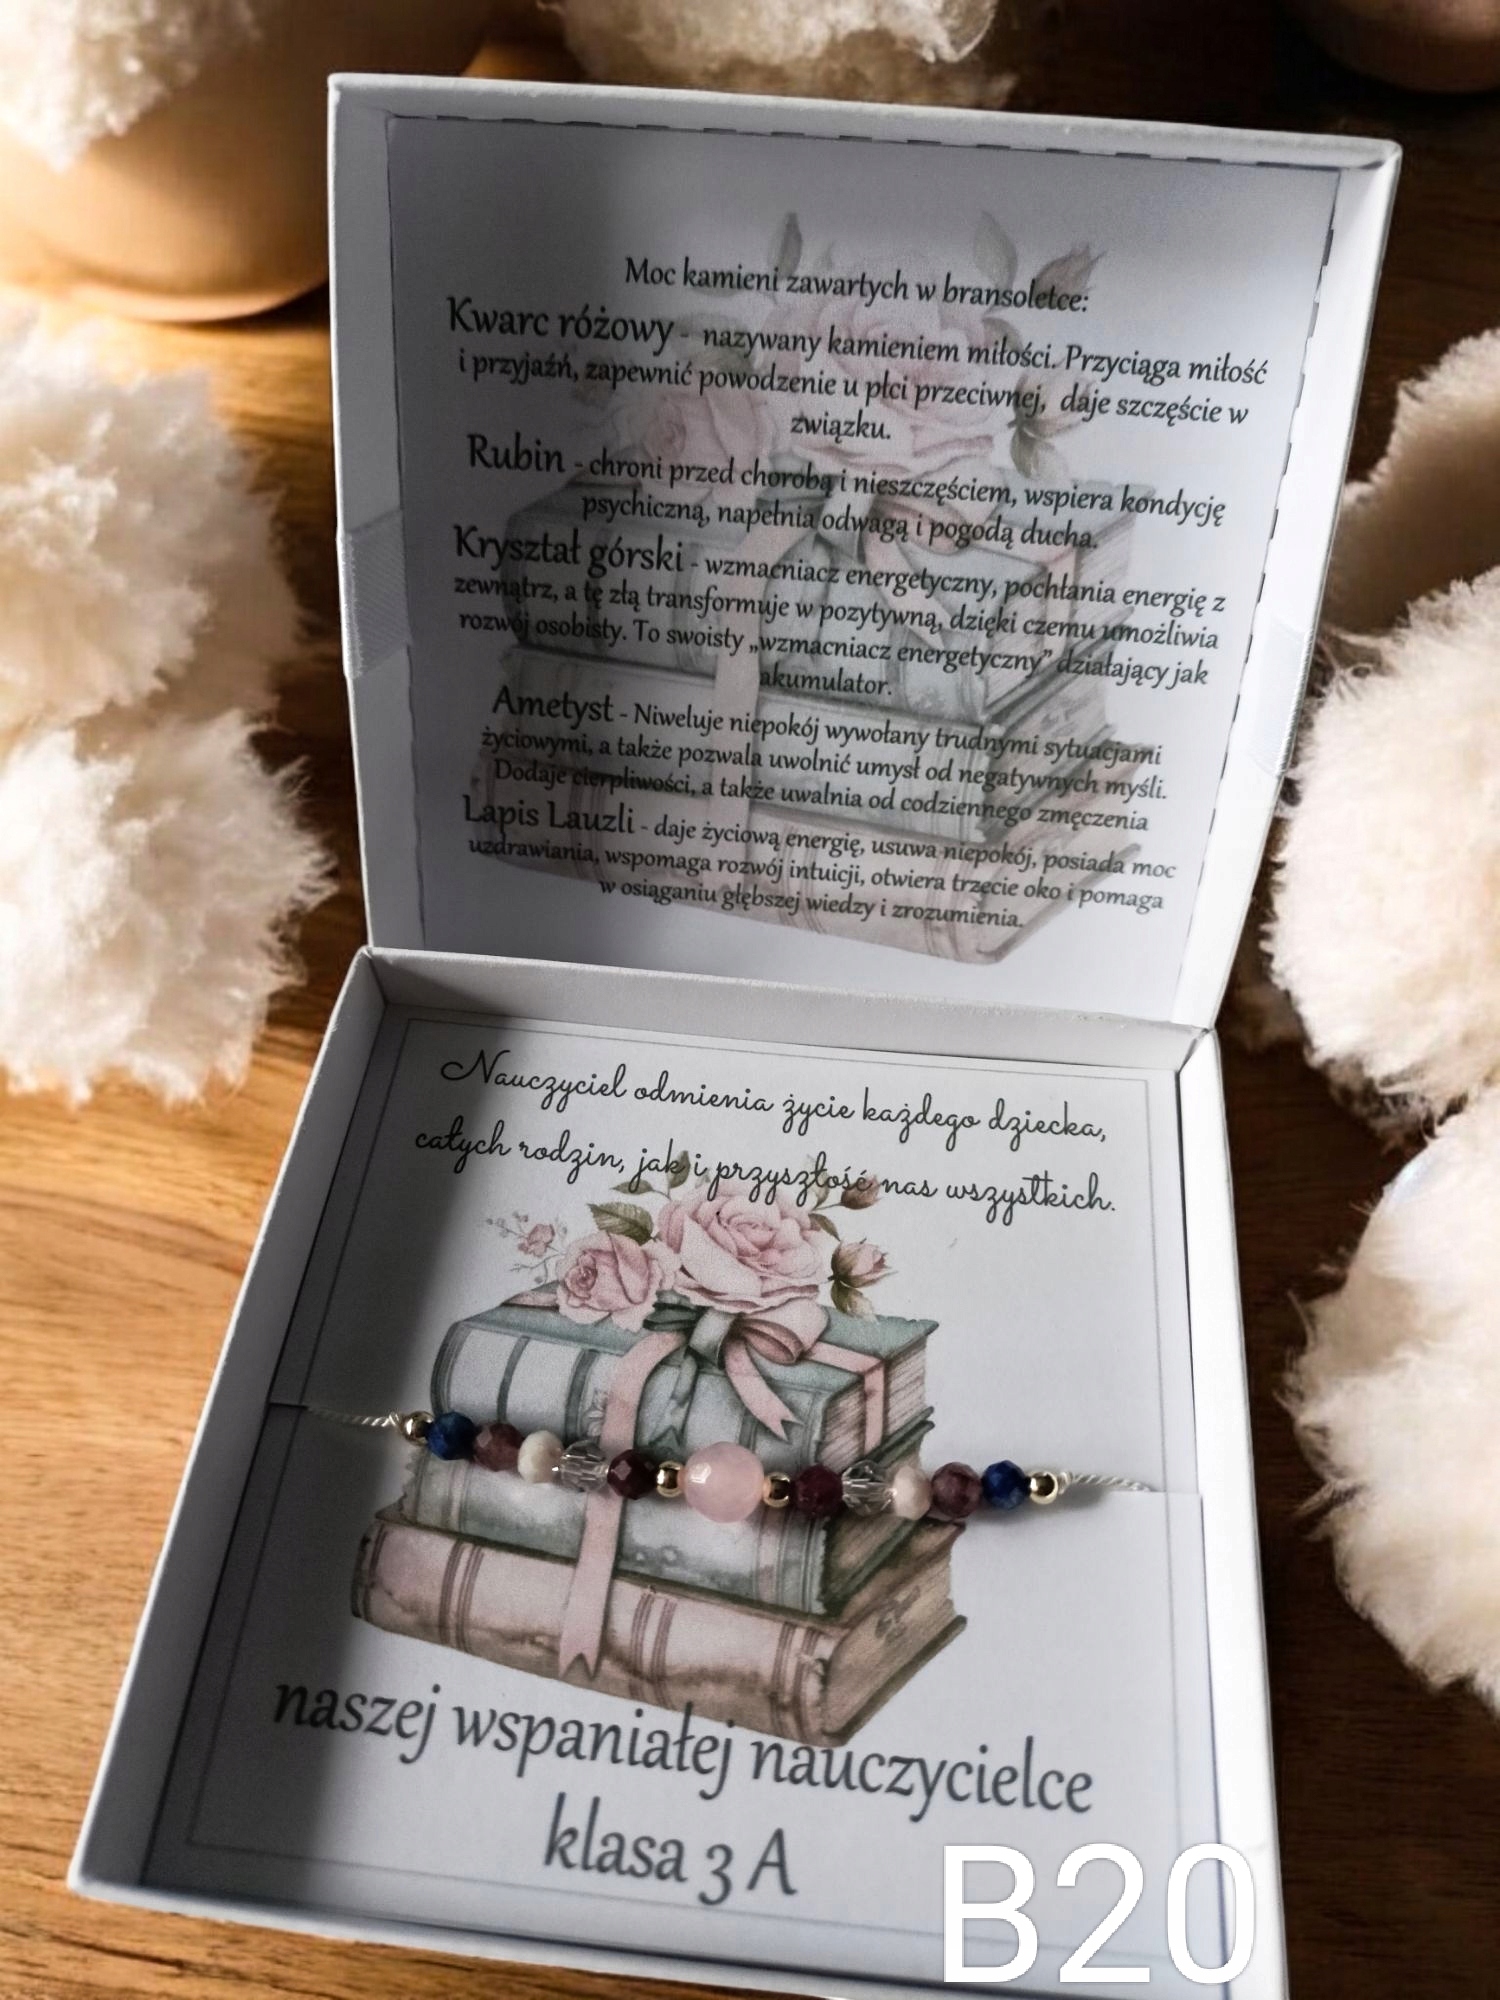 Moc kamieni zawartych w bransoletce:
Kwarc różowy - nazywany kamieniem miłości. Przyciąga miłość
i przyjaźń, zapewnić powodzenie u płci przeciwnej, daje szczęście w
związku.
Rubin - chroni przed chorobą i nieszczęściem, wspiera kondycję
psychiczną, napełnia odwagą i pogodą ducha.
Kryształ górski - wzmacniacz energetyczny, pochłania energię z
zewnątrz, a tę złą transformuje w pozytywną, dzięki czemu umożliwia
rozwój osobisty. To swoisty „wzmacniacz energetyczny” działający jak
akumulator.
Ametyst - Niweluje niepokój wywołany trudnymi sytuacjami
życiowymi, a także pozwala uwolnić umysł od negatywnych myśli.
Dodaje cierpliwości, a także uwalnia od codziennego zmęczenia
Lapis Lauzli - daje życiową energię, usuwa niepokój, posiada moc
uzdrawiania, wspomaga rozwój intuicji, otwiera trzecie oko i pomaga
w osiąganiu głębszej wiedzy i zrozumienia.
Nauczyciel odmienia życie każdego dziecka,
całych rodzin, jak i przyszłość nas wszystkich.
naszej wspaniałej nauczycielce
klasa 3 A
B20